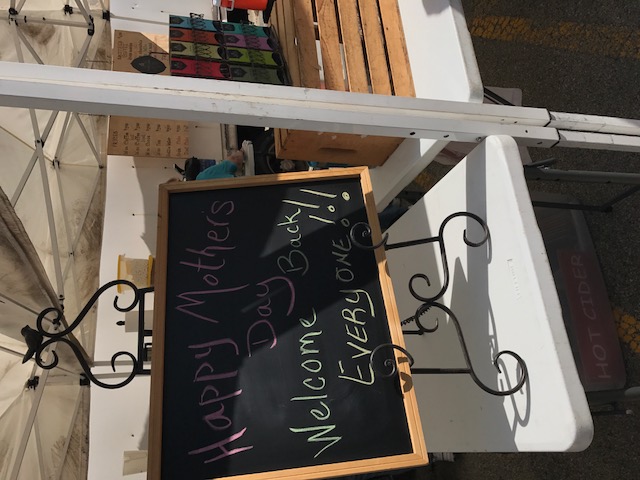 Happy Mothers
Day
Welcome Back!!
EVERYONE!!
HOT CIDER